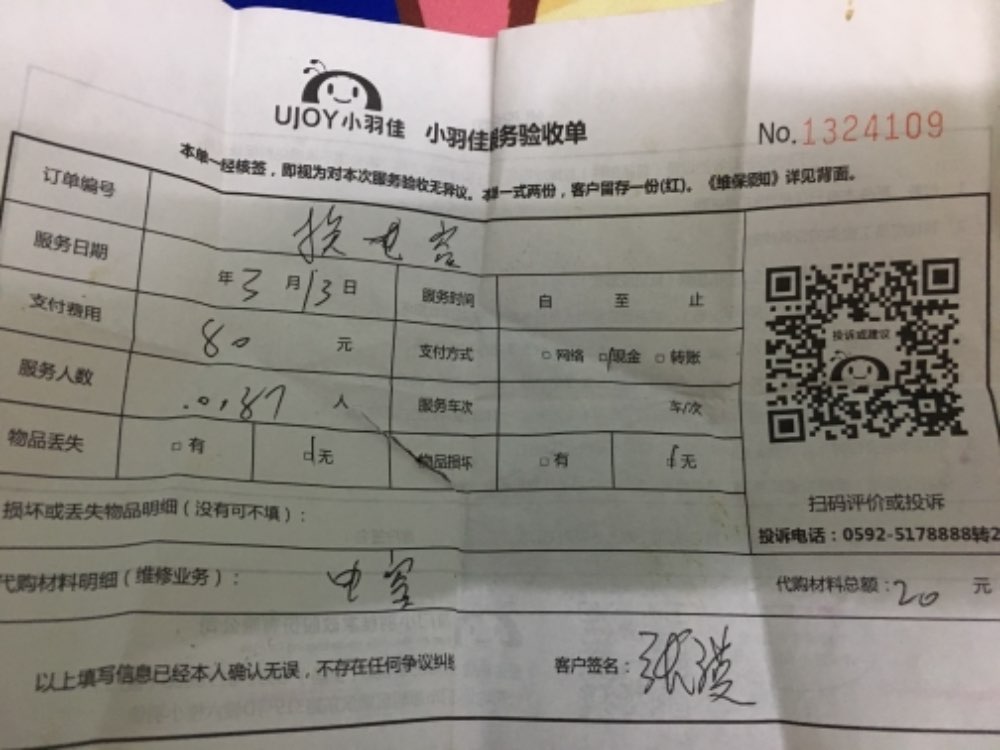 UJOY小羽佳 小羽佳服务验收单 No.1324109
本单一经核签，即视为对本次服务验收无异议。本单一式两份，客户留存一份(红)。《维保须知》详见背面。
订单编号 换电容
服务日期 年3月13日 服务时间 自 至 止
支付费用 80 元 支付方式 □网络 □现金 □转账
服务人数 人 服务车次 车/次
物品丢失 □有 □无 物品损坏 □有 □无
投诉或建议
扫码评价或投诉
投诉电话：0592-5178888转2
损坏或丢失物品明细（没有可不填）：
代购材料明细（维修业务）： 电容 代购材料总额：20 元
以上填写信息已经本人确认无误，不存在任何争议纠 客户签名：